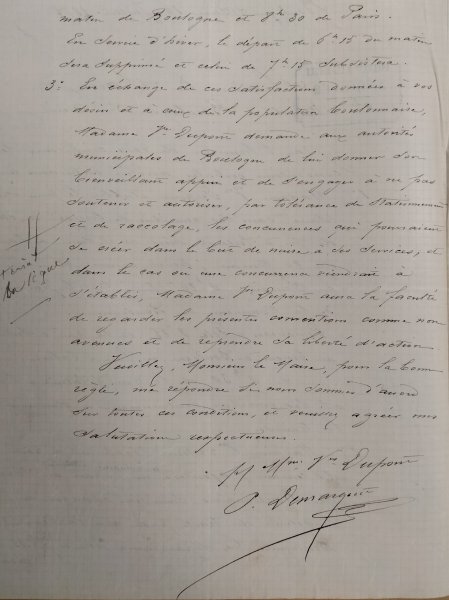 matin de Boulogne et 8h 30 de Paris.
En Service d'hiver, le départ de 6h 15 du matin
sera supprimé et celui de 7h 15 subsistera.
3° En échange de ces satisfactions données à vos
désirs et à ceux de la population boulonnaise,
Madame Vve Dupont demande aux autorités
municipales de Boulogne de lui donner son
bienveillant appui et de s'engager à ne pas
soutenir et autoriser, par tolérance de stationnement
et de raccolage, les concurrences qui pourraient
se créer dans le but de nuire à ses services, et
dans le cas où une concurrence viendrait à
s'établir, Madame Vve Dupont aura la faculté
de regarder les présentes conventions comme non
avenues et de reprendre sa liberté d'action
Veuillez, Monsieur le Maire, pour la bonne
règle, me répondre si nous sommes d'accord
sur toutes ces conditions, et veuillez agréer mes
salutations respectueuses.
Mme Vve Dupont